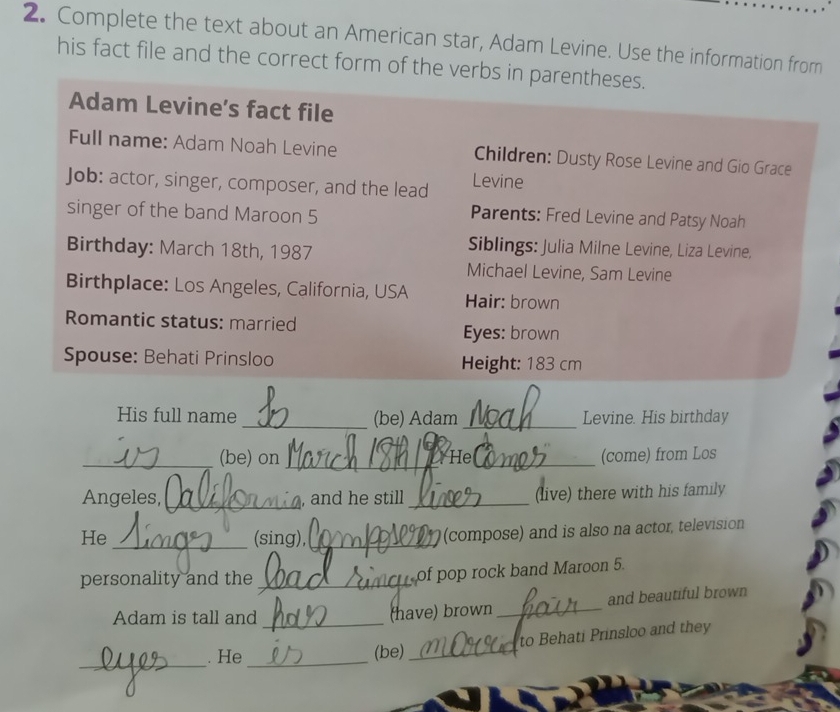 2. Complete the text about an American star, Adam Levine. Use the information from
his fact file and the correct form of the verbs in parentheses.
Adam Levine's fact file
Full name: Adam Noah Levine
Job: actor, singer, composer, and the lead
singer of the band Maroon 5
Birthday: March 18th, 1987
Birthplace: Los Angeles, California, USA
Romantic status: married
Spouse: Behati Prinsloo
Children: Dusty Rose Levine and Gio Grace
Levine
Parents: Fred Levine and Patsy Noah
Siblings: Julia Milne Levine, Liza Levine,
Michael Levine, Sam Levine
Hair: brown
Eyes: brown
Height: 183 cm
His full name is (be) Adam Noah Levine. His birthday
is (be) on March 18th He comes (come) from Los
Angeles, California, and he still lives (live) there with his family
He sings (sing), composes (compose) and is also na actor, television
personality and the lead singer of pop rock band Maroon 5.
Adam is tall and has (have) brown hair and beautiful brown
eyes. He is (be) to Behati Prinsloo and they